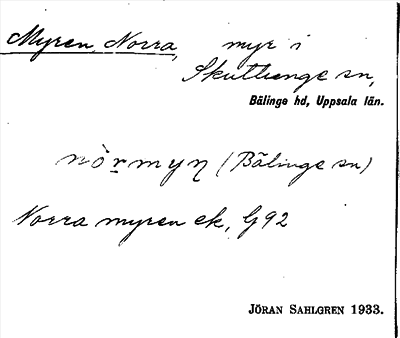 Myren, Norra, myr i
Skuttunge sn,
Bälinge hd, Uppsala län.
nòr̲myn̥ (Bälinge sn)
Norra myren ek, G92
JÖRAN SAHLGREN 1933.